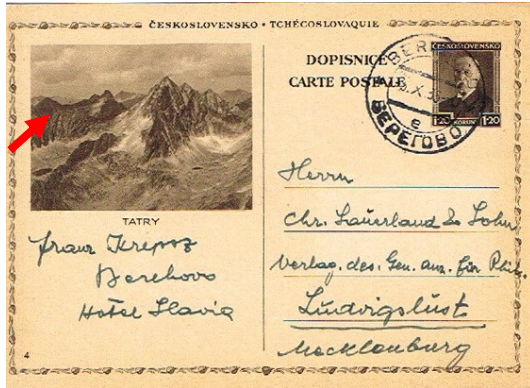 ČESKOSLOVENSKO • TCHÉCOSLOVAQUIE
DOPISNICE
CARTE POSTALE
ČESKOSLOVENSKO
1·20 KORUN 1·20
BERE
X
e
БЕРЕГОВО
TATRY
Franz
Berehovo
Hotel Slavia
Herrn
Chr. Sauerland & Sohn
Verlag. des. Gen. anz. für Phil.
Ludwigslust
Mecklenburg
4